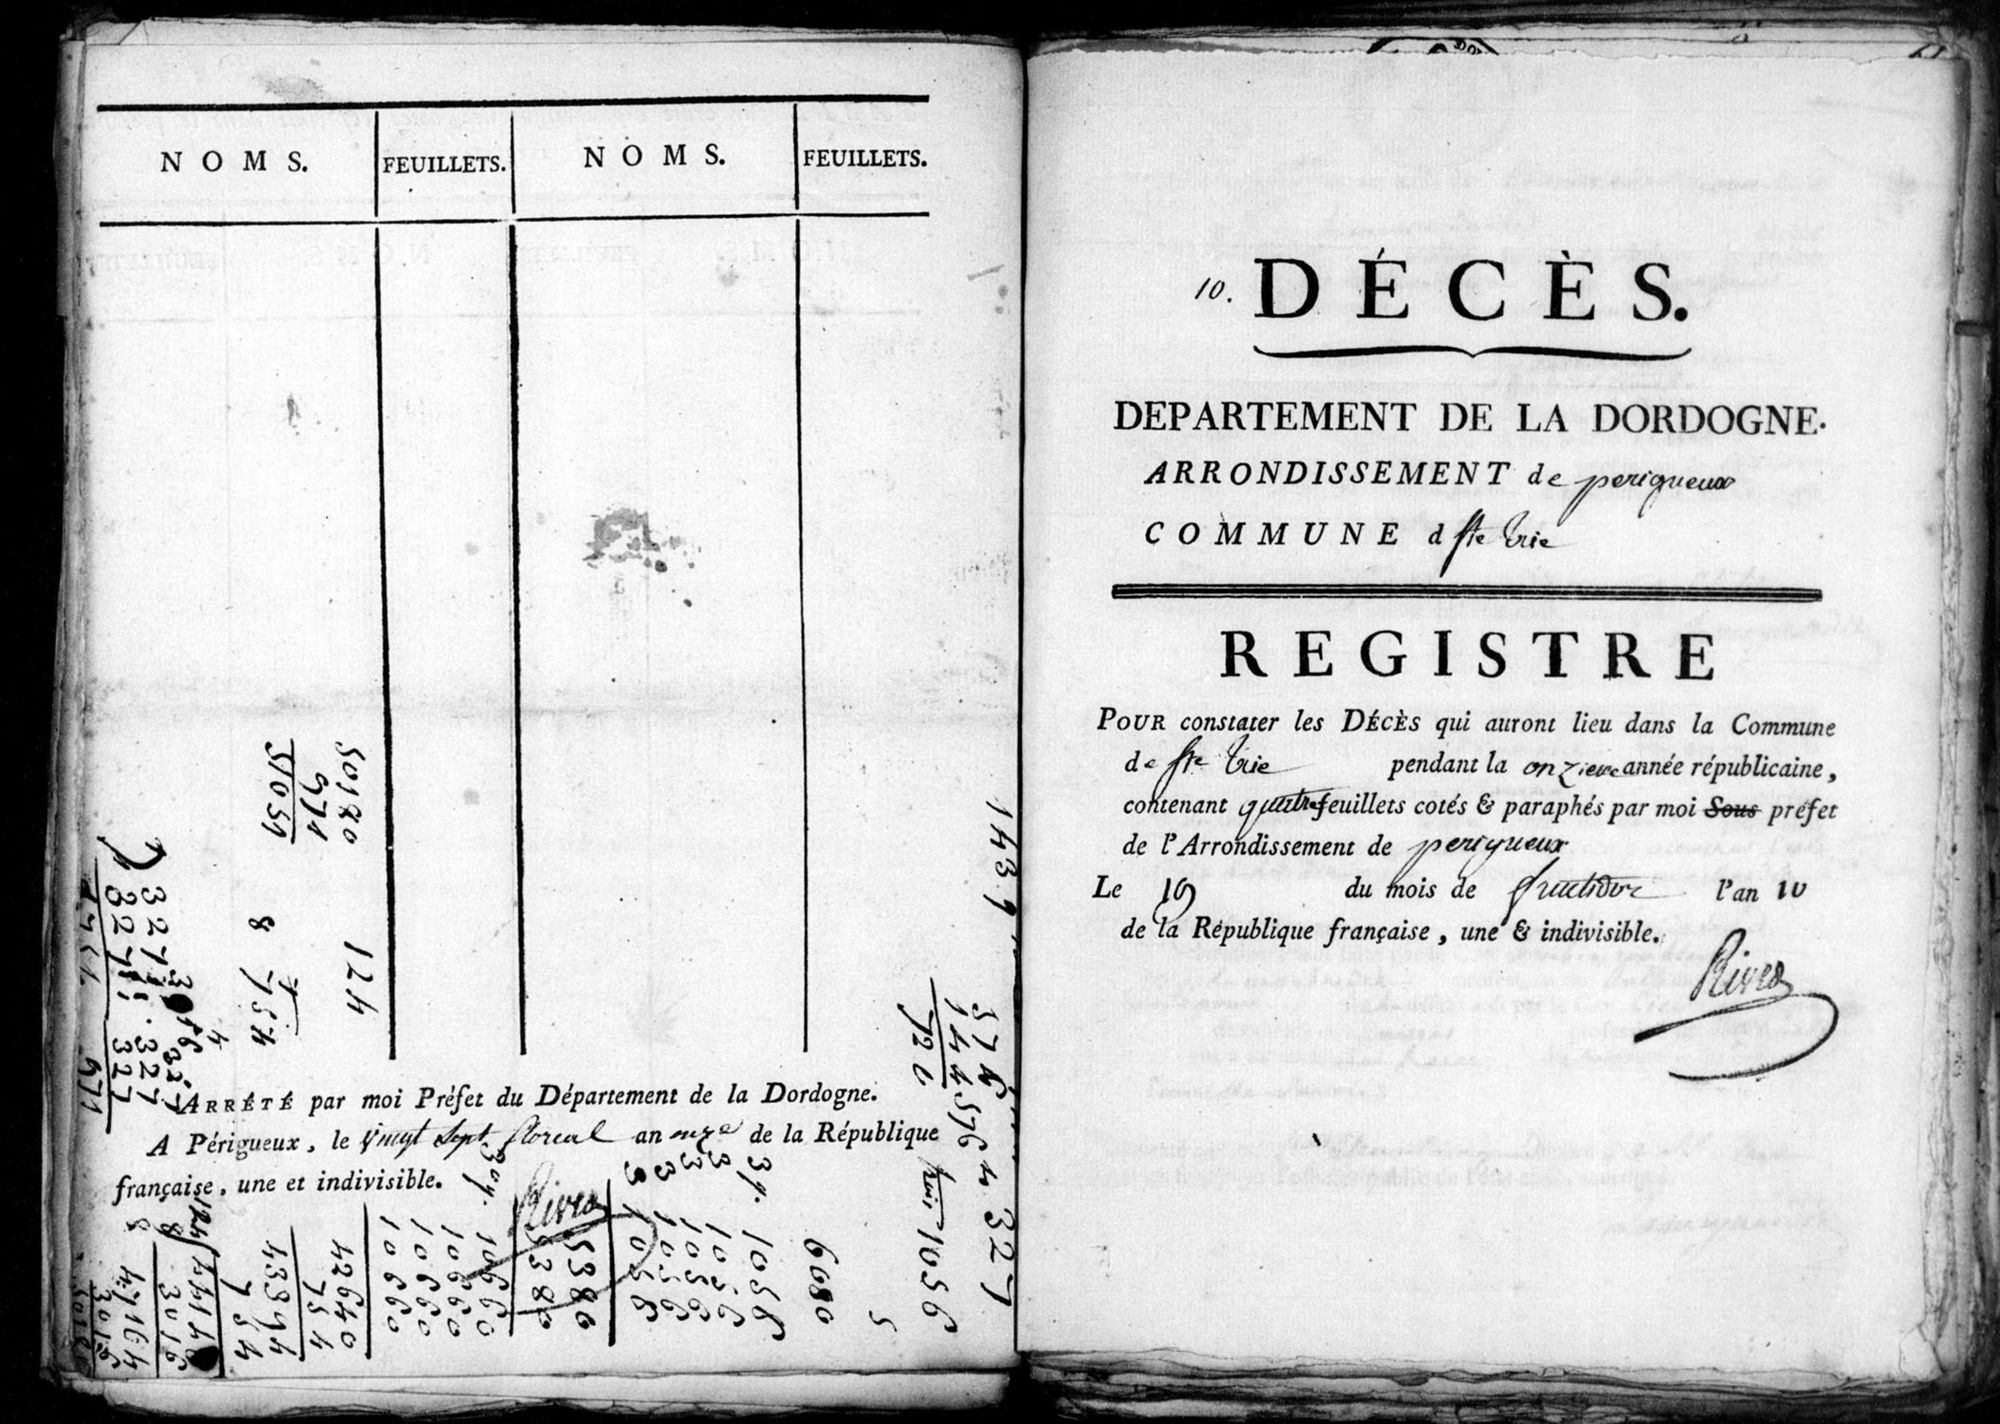 NOMS. FEUILLETS. NOMS. FEUILLETS.
50180
871
51051
124
8 754
4
1439
576
144
720
576 4 327
ARRÊTÉ par moi Préfet du Département de la Dordogne.
A Périgueux, le vingt sept floreal an onze de la République
française, une et indivisible.
Rives
1056
6080
5
1056
1056
1056
1056
5380
5380
10660
10660
10660
10660
42640
754
43394
754
44148
3016
47164
3016
50180
10. DÉCÈS.
DEPARTEMENT DE LA DORDOGNE.
ARRONDISSEMENT de perigueux
COMMUNE d Ste Trie
REGISTRE
POUR constater les DÉCÈS qui auront lieu dans la Commune
de Ste Trie pendant la onzieme année républicaine,
contenant quatre feuillets cotés & paraphés par moi Sous préfet
de l'Arrondissement de perigueux
Le 19 du mois de fructidor l'an 10
de la République française, une & indivisible.
Rives